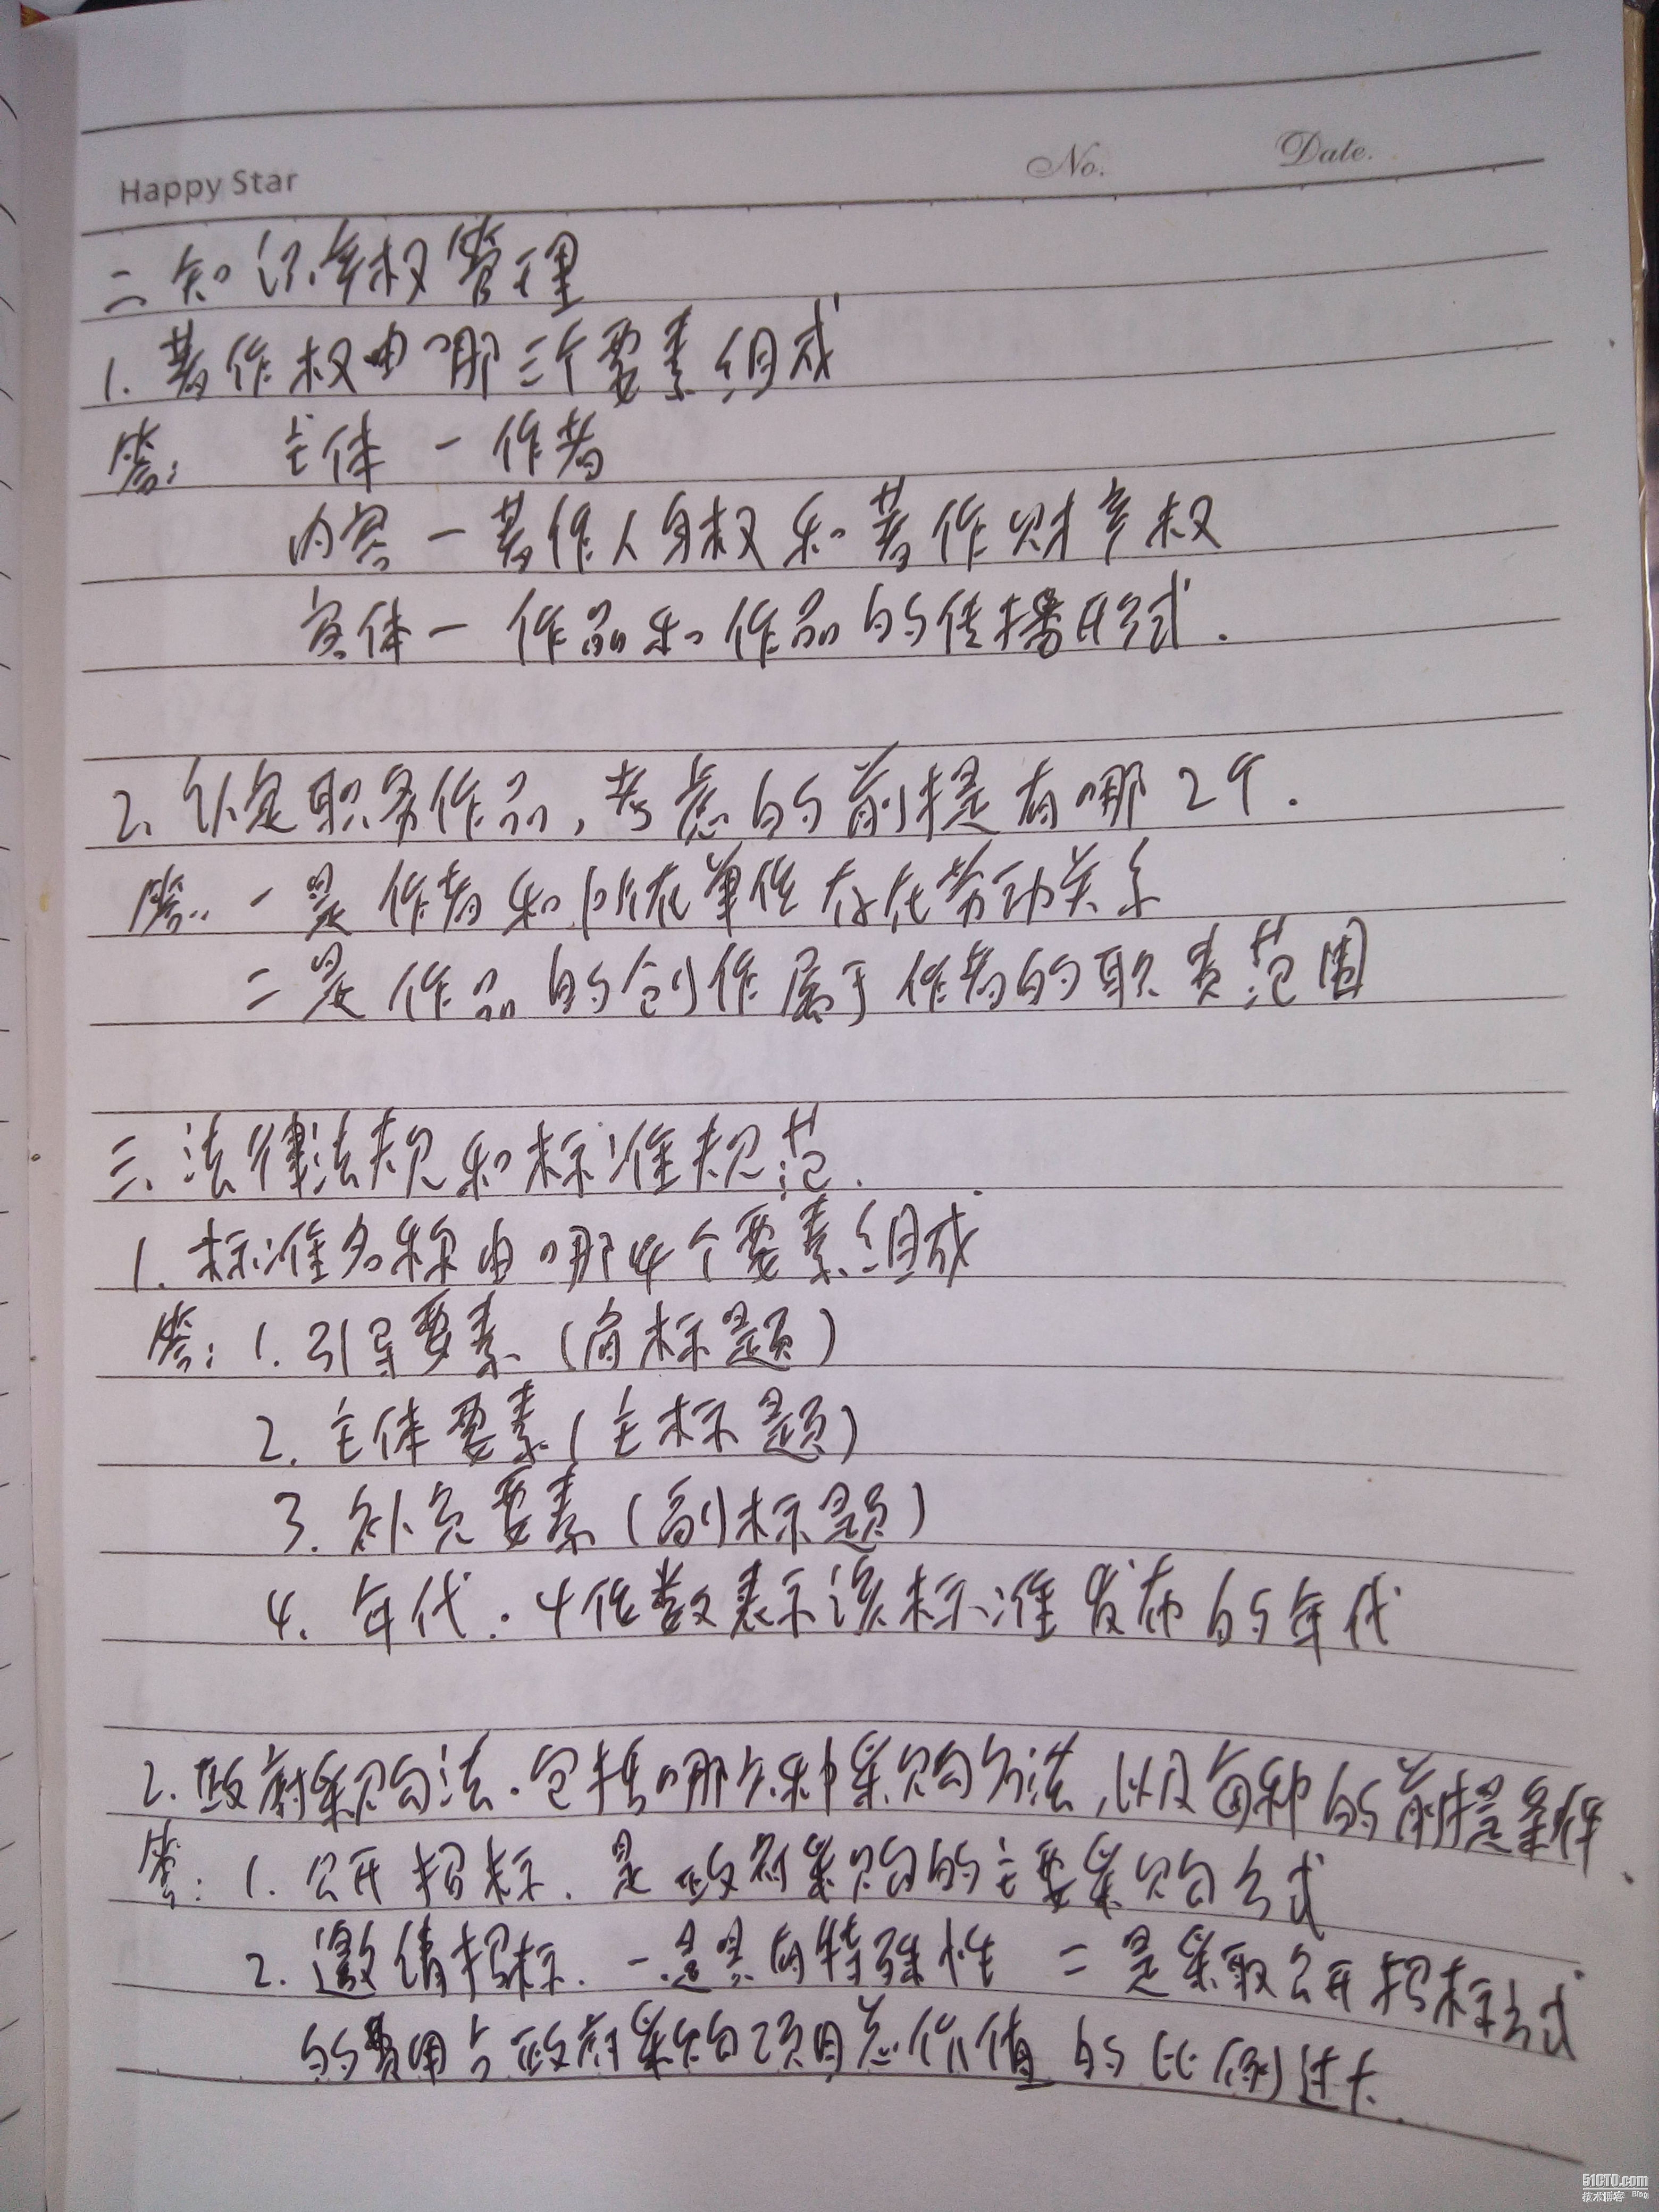 Happy Star No. Date.
二、知识产权管理
1. 著作权由哪三个要素组成
答: 主体 — 作者
内容 — 著作人身权和著作财产权
实体 — 作品和作品的传播形式.
2. 认定职务作品,考虑的前提有哪2个.
答: 一是作者和所在单位存在劳动关系
二是作品的创作属于作者的职责范围
三、法律法规和标准规范.
1. 标准名称由哪4个要素组成
答: 1. 引导要素(肩标题)
2. 主体要素(主标题)
3. 补充要素(副标题)
4. 年代. 4位数表示该标准发布的年代
2. 政府采购法. 包括哪几种采购方法,以及每种的前提条件.
答: 1. 公开招标. 是政府采购的主要采购方式
2. 邀请招标. 一是具有特殊性 二是采取公开招标方式
的费用占政府采购项目总价值的比例过大.
51CTO.com
技术博客 Blog